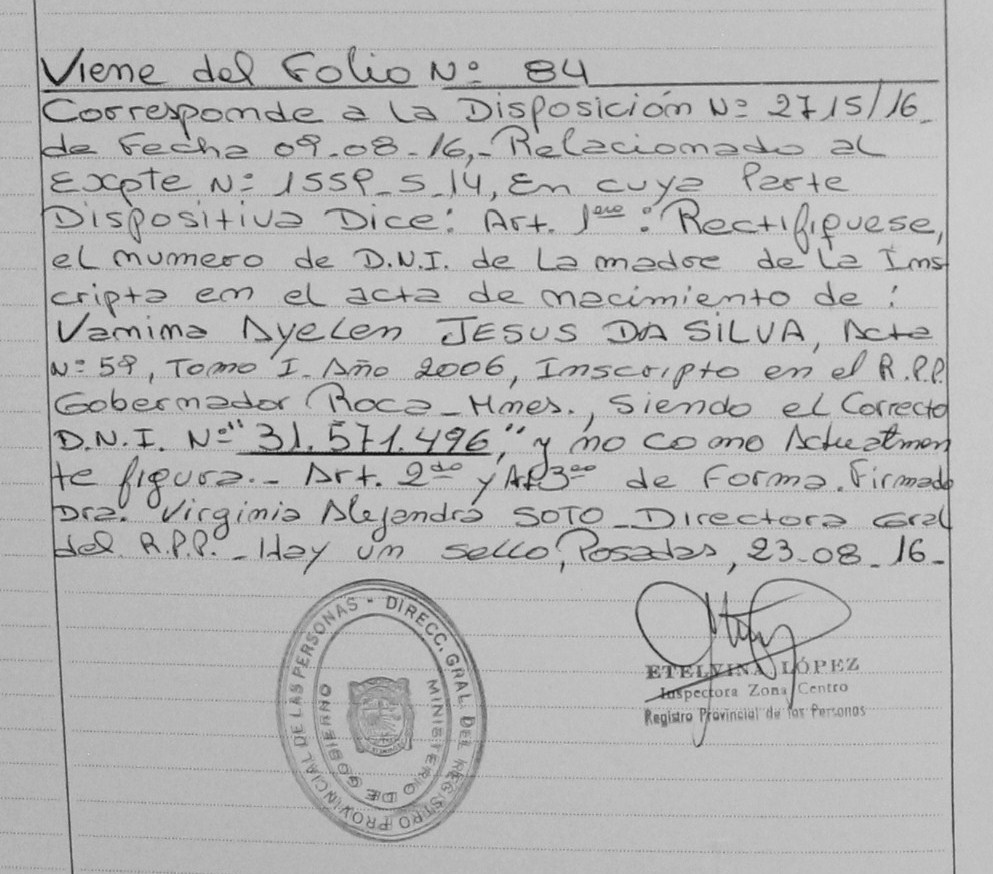 Viene del Folio Nº 84
Corresponde a la Disposición Nº 2715/16
de Fecha 09-08-16,- Relacionado al
Expte Nº 1559-S-14, En cuya Parte
Dispositiva Dice: Art. 1ero: Rectifiquese,
el numero de D.N.I. de La madre de la Ins
cripta en el acta de nacimiento de:
Vanina Ayelen JESUS DA SILVA, Acta
Nº 59, Tomo I. Año 2006, Inscripto en el R.P.P.
Gobernador Roca-Mnes., Siendo el Correcto
D.N.I. Nº "31.571.496", y no como Actualmen
te figura.- Art. 2do y Art 3ro de Forma. Firmado
Dra. Virginia Alejandra SOTO-Directora Gral
del R.P.P.- Hay un sello, Posadas, 23-08-16-
DIRECC. GRAL. DEL REGISTRO PROVINCIAL DE LAS PERSONAS -
MINISTERIO DE GOBIERNO
ETELVINA LÓPEZ
Inspectora Zona Centro
Registro Provincial de las Personas